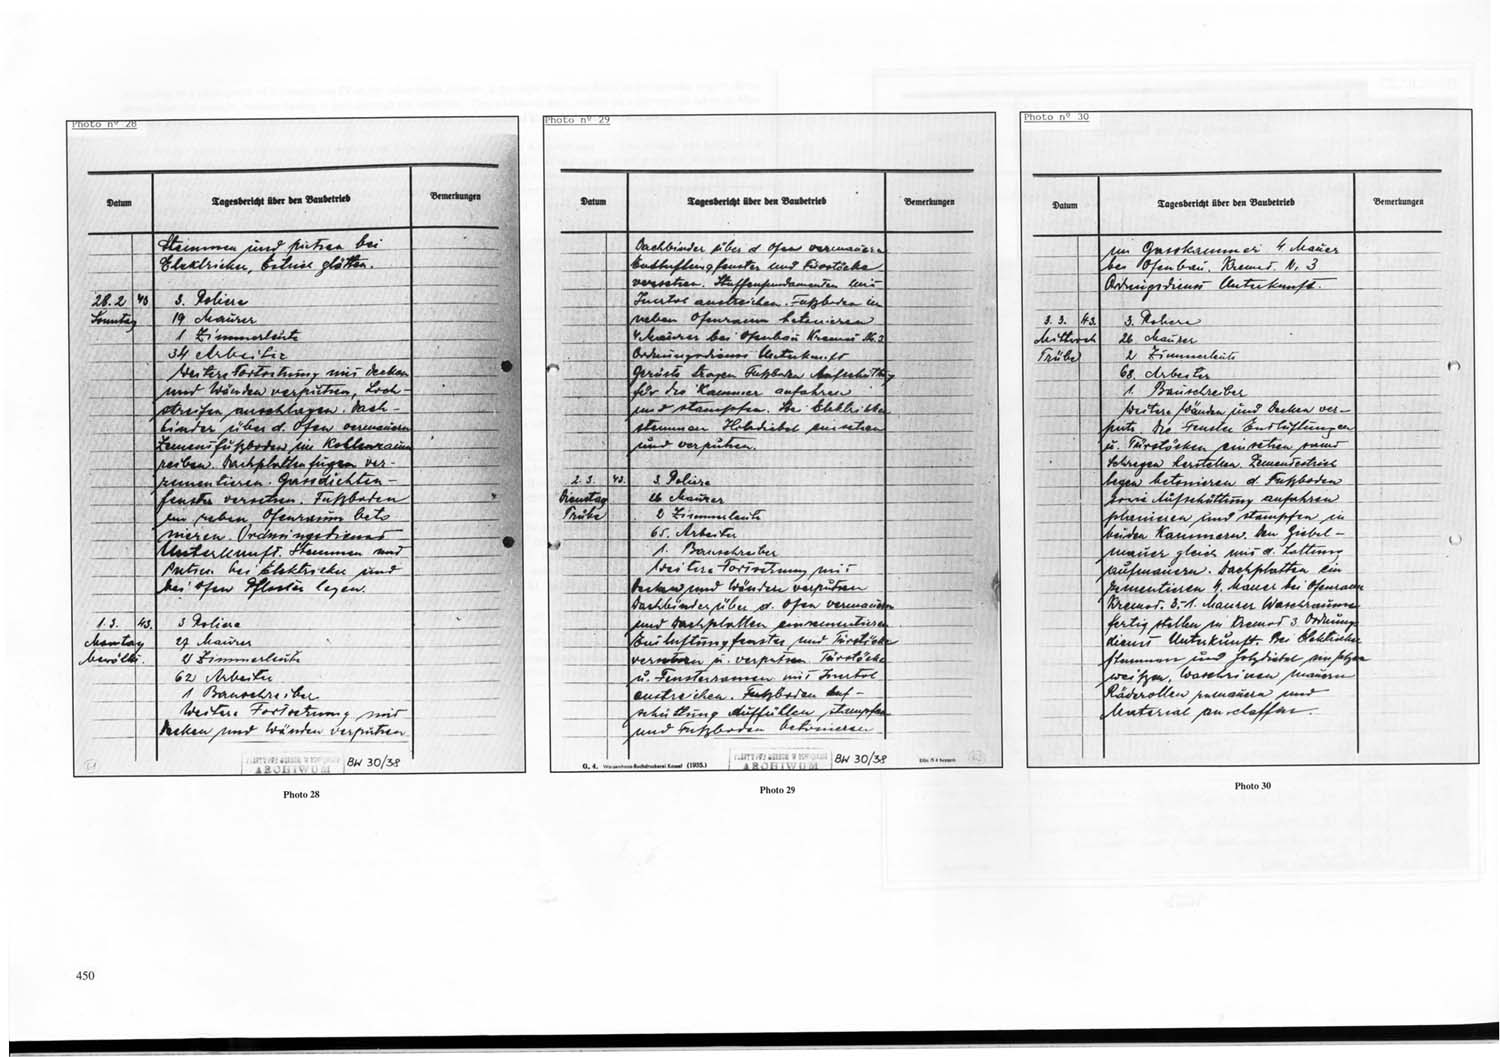 Photo nº 28
Datum
Tagesbericht über den Baubetrieb
Bemerkungen
Stemmen und putzen bei
Elektriker, Estrich glätten.
28.2 43 3. Poliere
Sonntag 19 Maurer
1 Zimmerleute
34 Arbeiter
Weitere Fortsetzung mit Decken
und Wänden verputzen, Loch-
streifen anschlagen. Dach-
binder über d. Ofen vermauern
Zementfußboden im Kohlenraum
reiben. Dachplattenfugen ver-
zementieren. Gassdichten-
fenster versetzen. Fußboden
im neben Ofenraum beto
nieren. Ordnungsdienst
Unterkunft. Stemmen und
Putzen bei Elektriker und
bei Ofen Pflaster legen.
1.3. 43. 3 Poliere
Montag 27 Maurer
bewölkt. 2 Zimmerleute
62 Arbeiter
1 Bauschreiber
Weitere Fortsetzung mit
Decken und Wänden verputzen
ARCHIWUM
BW 30/38
Photo 28
Photo nº 29
Datum
Tagesbericht über den Baubetrieb
Bemerkungen
Dachbinder über d Ofen vermauern
Entlüftungfenster und Türstöcke
versetzen. Stuffenfundamenten mit
Inertol anstreichen. Fußboden im
neben Ofenraum betonieren
4 Maurer bei Ofenbau Kremat No. 2
Ordnungsdienst Unterkunft
Gerüste tragen Fußboden Aufschüttung
für die Kammer anfahren
und stampfen. Bei Elektriker
stemmen Holzdiebel einsetzen
und verputzen.
2.3. 43. 3 Poliere
Dienstag 26 Maurer
Trübe 2 Zimmerleute
65. Arbeiter
1. Bauschreiber
Weitere Fortsetzung mit
Decken und Wänden verputzen
Dachbinder über d. Ofen vermauern
und Dachplatten einzementieren
Entluftungfenster und Türstöcke
versetzen u. verputzen Türstöcke
u. Fensterramen mit Inertol
anstreichen. Fußboden Auf-
schüttung Auffüllen stampfen
und Fußboden betonieren
G. 4. Waisenhaus-Buchdruckerei Kassel (1935.)
ARCHIWUM
BW 30/38
Photo 29
Photo nº 30
Datum
Tagesbericht über den Baubetrieb
Bemerkungen
im Gasskammer 4 Maurer
bei Ofenbau. Kremat. N. 3
Ordnungsdienst Unterkunft.
3.3. 43. 3. Poliere
Mittwoch 26 Maurer
Trübe 2 Zimmerleute
68. Arbeiter
1. Bauschreiber
Weitere Wänden und Decken ver-
putz. Die Fenster Entlüftungen
u. Türstöcken einsetzen sowie
Schregen herstellen. Zementestrich
legen betonieren d. Fußboden
sowie Aufschüttung anfahren
planieren und stampfen in
beiden Kammern. Den Giebel-
mauer gleich mit d. Lattung
aufmauern. Dachplatten ein
zementieren 4. Maurer bei Ofenraum
Kremat. 3. - 1. Maurer Waschraume
fertig stellen in Kremat 3. Ordnung
dienst Unterkunft. Bei Elektriker
stemmen und Holzdiebel einsetzen
mauern
Räderollen und
Material anschaffen.
Photo 30
450